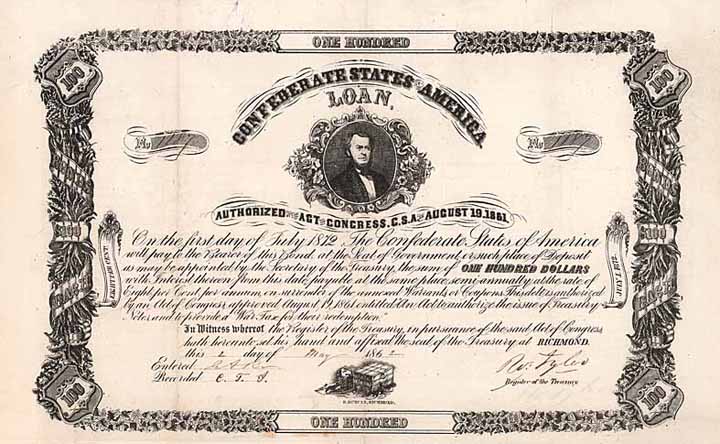 ONE HUNDRED
100
100
CONFEDERATE STATES OF AMERICA
LOAN,
No
No
AUTHORIZED BY THE ACT OF CONGRESS, C.S.A. OF AUGUST 19, 1861.
On the first day of July 1872 The Confederate States of America
will pay to the Bearer of this Bond, at the Seat of Government, or such place of Deposit
as may be appointed by the Secretary of the Treasury, the sum of ONE HUNDRED DOLLARS
with Interest thereon from this date, payable at the same place semi-annually, at the rate of
Eight per Cent per annum, on surrender of the annexed Warrants or Coupons. This debt is authorized
by an Act of Congress, approved August 19, 1861, entitled "An Act to authorize the issue of Treasury
Notes, and to provide a War Tax for their redemption."
In Witness whereof the Register of the Treasury, in pursuance of the said Act of Congress
hath hereunto set his hand and affixed the seal of the Treasury at RICHMOND.
this 2 day of May 1862
Entered
Recorded C. T. J.
Ro. Tyler
Register of the Treasury
EIGHT PER CENT.
JULY 1, 1872.
100
100
ONE HUNDRED